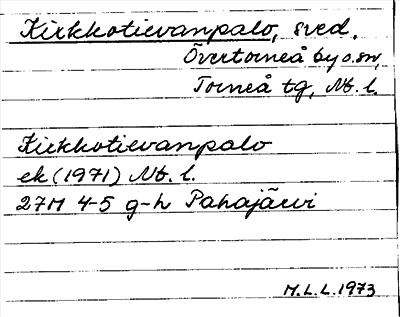 Kirkkotievanpalo, sved.
Övertorneå by o. sn,
Torneå tg, Nb. l.
Kirkkotievanpalo
ek (1971) Nb. l.
27M 4-5 g-h Pahajärvi
M.L.L. 1973